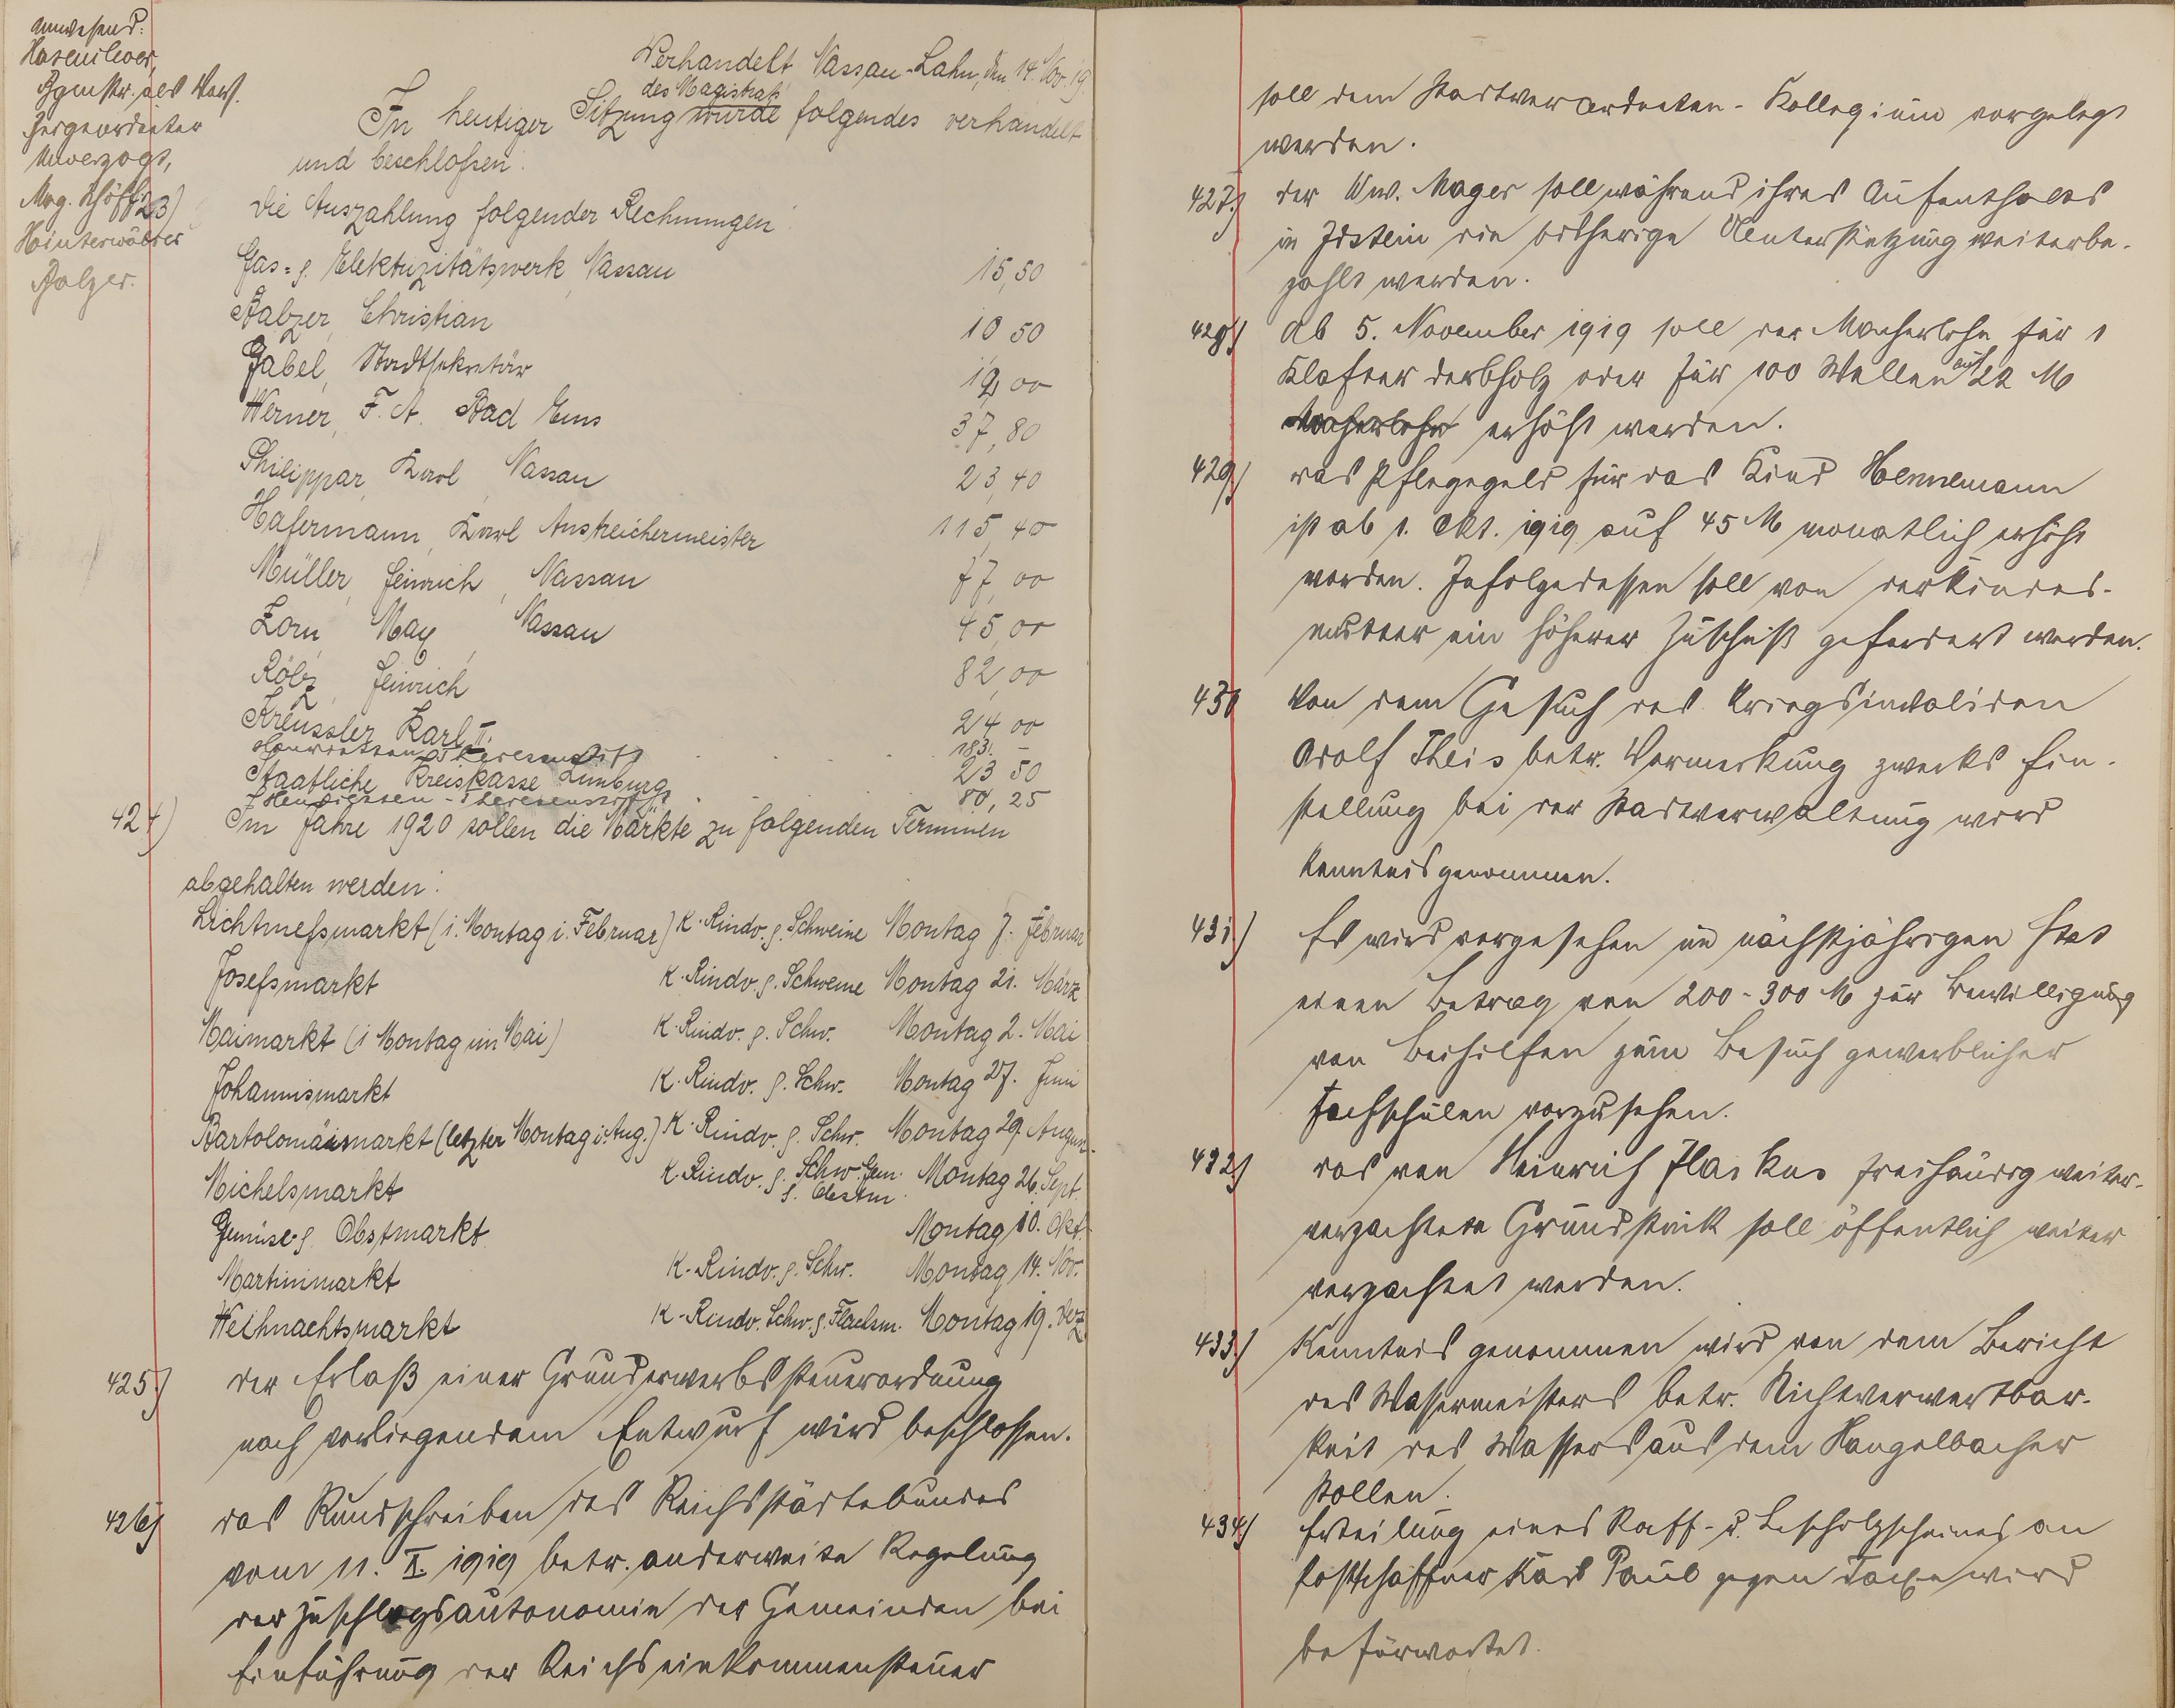 Anwesend:
Hasenclever,
Bgmstr. als Vors.
Beigeordneter
Unverzagt,
Mag. Schöff.
Hinterwäller
Balzer.
Verhandelt Nassau-Lahn, den 14. Nov. 19.
des Magistrats
In heutiger Sitzung wurde folgendes verhandelt
und beschloßen:
423) Die Auszahlung folgender Rechnungen:
Gas- u. Elektrizitätswerk, Nassau 15,50
Balzer, Christian 10 50
Gabel, Stadtsekretär 19,00
Werner, F. A. Bad Ems 37,80
Philippar, Karl, Nassau 23,40
Hafermann, Karl Anstreichermeister 115,40
Müller, Heinrich, Nassau 77,00
Zorn, Max, Nassau 45,00
Rölz, Heinrich 82,00
Kreussler Karl II. 24 00
Henrietten Theresenstift 183. –
Staatliche Kreiskasse Limburg 23 50
Henrietten-Theresenstift 80,25
424) Im Jahre 1920 sollen die Märkte zu folgenden Terminen
abgehalten werden:
Lichtmeßmarkt (1. Montag i. Februar) K. Rindv. u. Schweine Montag 7. Februar
Josefsmarkt K. Rindv. u. Schweine Montag 21. März
Maimarkt (1 Montag im Mai) K. Rindv. u. Schw. Montag 2. Mai
Johannismarkt K. Rindv. u. Schw. Montag 27. Juni
Bartolomäismarkt (letzter Montag i. Aug.) K. Rindv. u. Schw. Montag 29. August
Michelsmarkt K. Rindv. u. Schw. Gem. u. Obstm. Montag 26. Sept.
Gemüse u. Obstmarkt Montag 10. Okt.
Martinimarkt K. Rindv. u. Schw. Montag 14. Nov.
Weihnachtsmarkt K. Rindv. Schw. u. Flachsm. Montag 19. Dez.
425.) Der Erlaß einer Grunderwerbssteuerordnung
nach vorliegendem Entwurf wird beschlossen.
426) Das Rundschreiben des Reichsstädtebundes
vom 11. X. 1919 betr. anderweite Regelung
der Zuschlagsautonomie der Gemeinden bei
Einführung der Reichseinkommensteuer
soll dem Stadtverordneten-Kollegium vorgelegt
werden.
427.) Der Ww. Mager soll während ihres Aufenthaltes
in Idstein die bisherige Unterstützung weiterbe-
zahlt werden.
428) Ab 5. November 1919 soll der Macherlohn für 1
Klafter Derbholz oder für 100 Wellen auf 22 M
Macherlohn erhöht werden.
429) Das Pflegegeld für das Kind Hennemann
ist ab 1. Okt. 1919 auf 45 M monatlich erhöht
worden. Infolgedessen soll von der Kindes-
mutter ein höherer Zuschuß gefordert werden.
430 Von dem Gesuch des Kriegsinvaliden
Adolf Theis betr. Vormerkung zwecks Ein-
stellung bei der Stadtverwaltung wird
Kenntnis genommen.
431.) Es wird vorgesehen im nächstjährigen Etat
einen Betrag von 200-300 M zur Bewilligung
von Beihilfen zum Besuch gewerblicher
Fachschulen vorzusehen.
432.) Das von Heinrich Flaskus freihändig weiter-
verpachtete Grundstück soll öffentlich weiter
verpachtet werden.
433.) Kenntnis genommen wird von dem Bericht
des Wassermeisters betr. Nichtverwertbar-
keit des Wassers aus dem Hangelbacher
Stollen.
434) Erteilung eines Raff- u. Leseholzscheines an
Postschaffner Karl Paul gegen Taxe wird
befürwortet.